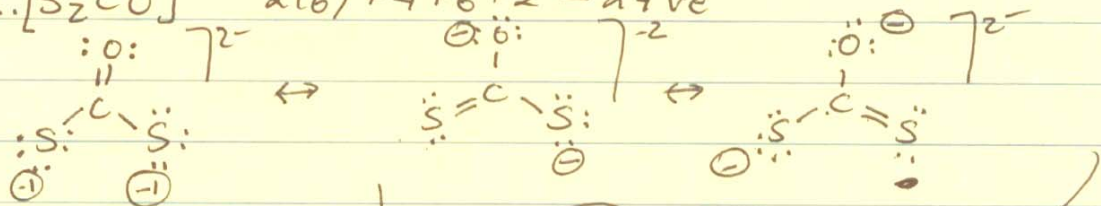 [S₂CO]²⁻ 2(6)+4+6+2 = 24 ve
:O: ]2- ⊖:Ö: ]-2 :Ö: ⊖ ]2-
|| | |
C ↔ C ↔ C
:S: S: S S: S S
-1 -1 ⊖ ⊖